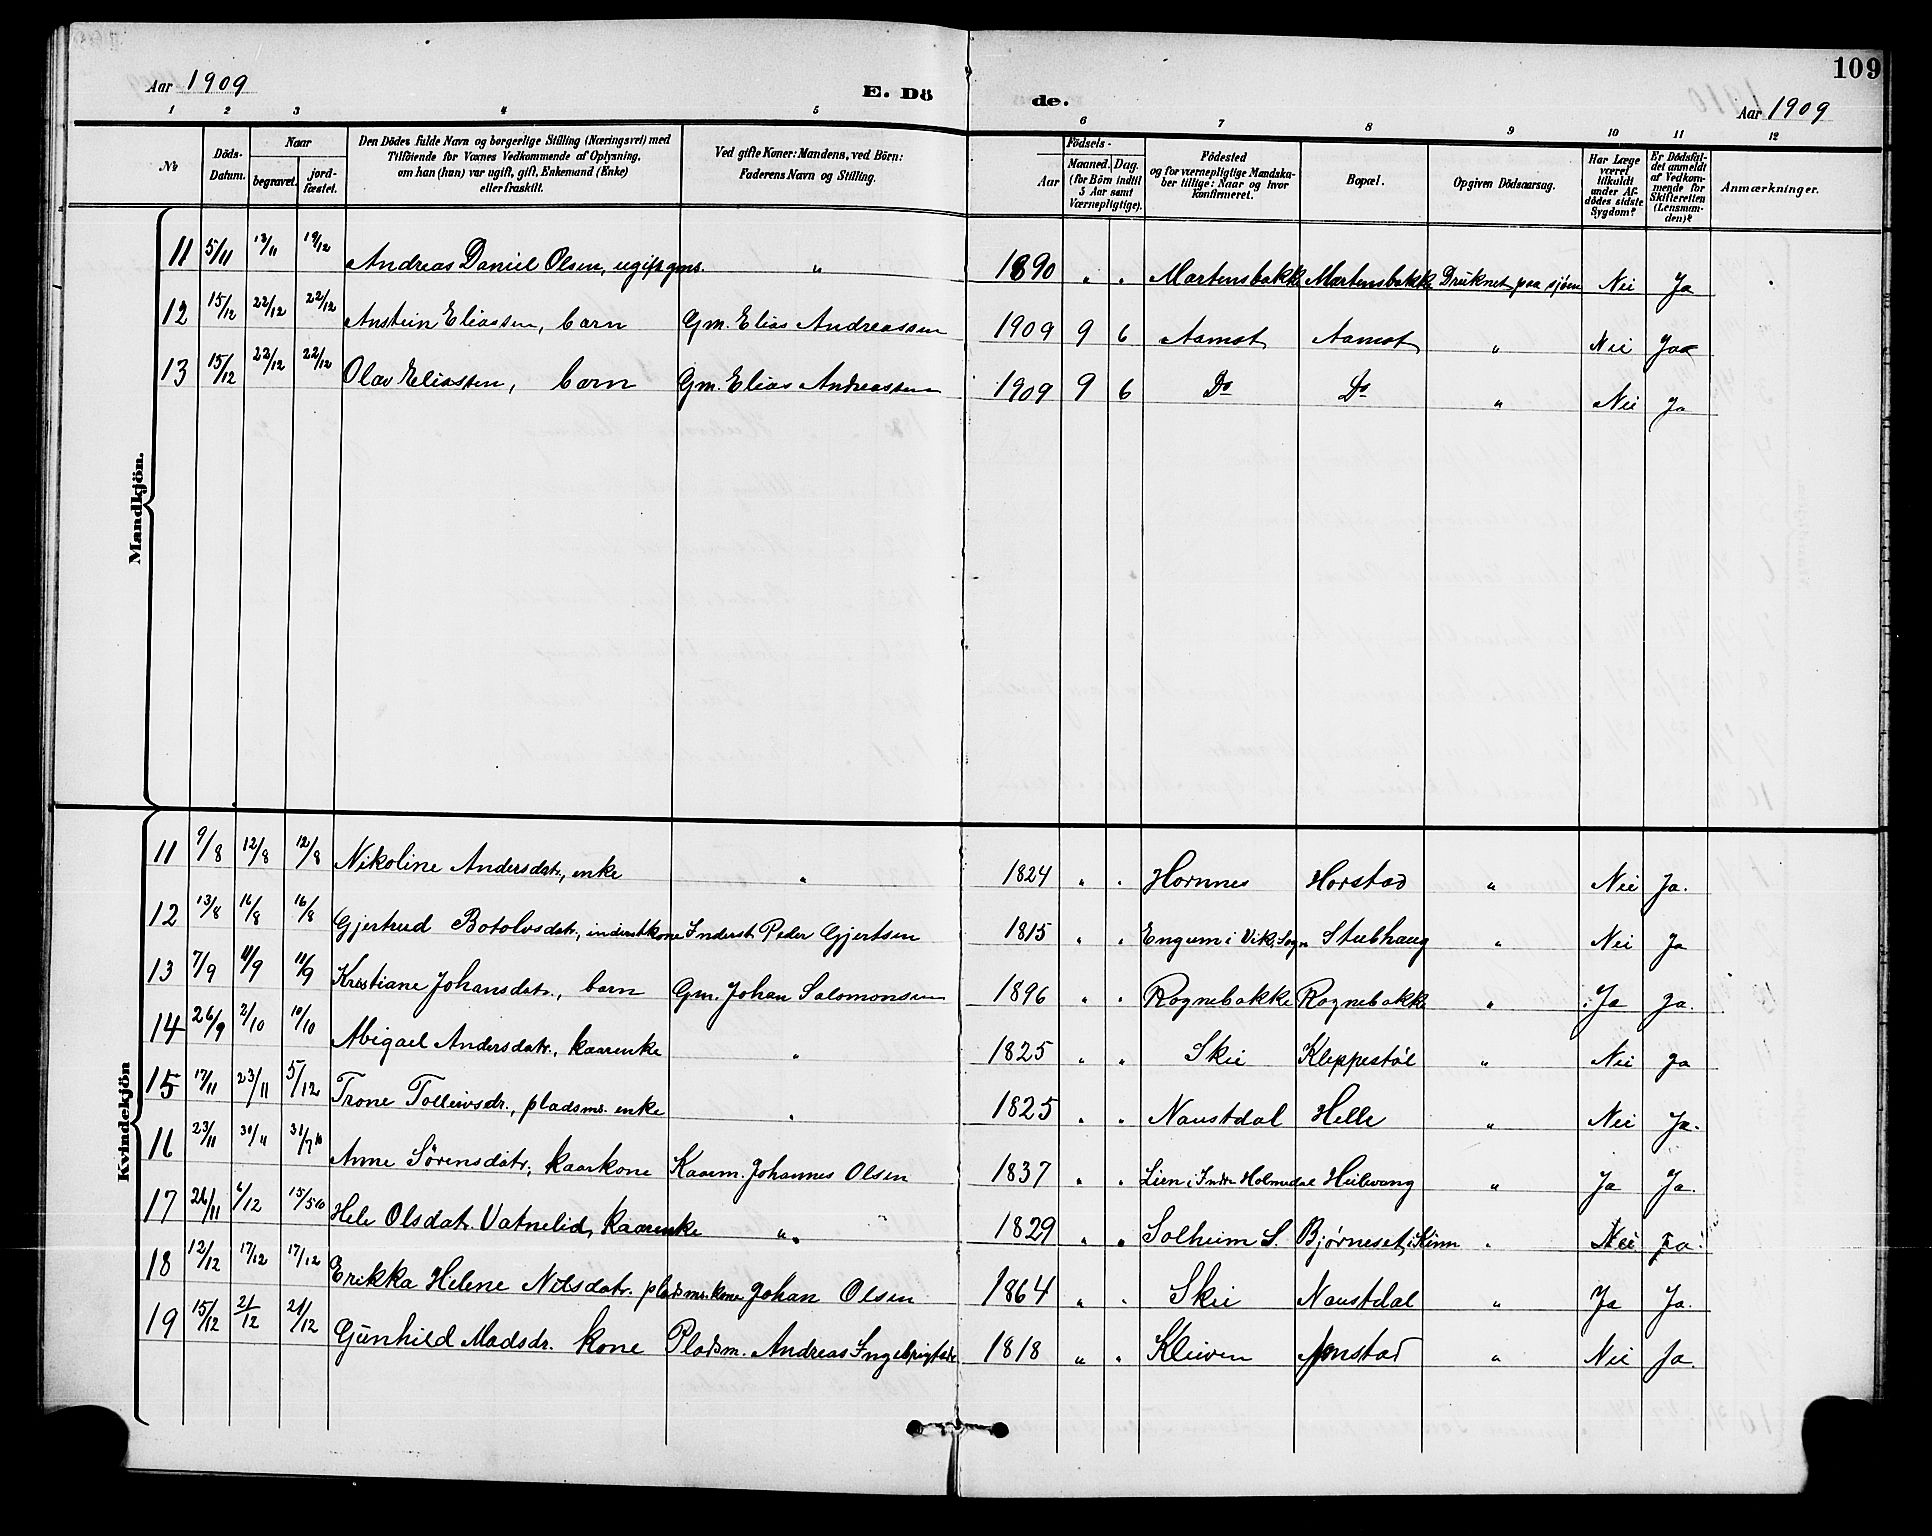 109
Aar 1909
E. Dö de.
Aar 1909
1 2 3 4 5 6 7 8 9 10 11 12
No
Döds-Datum.
Naar
begravet.
jord-fæstet.
Den Dödes fulde Navn og borgerlige Stilling (Næringsvei) med
Tilföiende for Voxnes Vedkommende af Oplysning,
om han (hun) var ugift, gift, Enkemand (Enke)
eller fraskilt.
Ved gifte Koner: Mandens, ved Börn:
Faderens Navn og Stilling.
Födsels-
Aar
Maaned. Dag.
(for Börn indtil
3 Aar samt
Værnepligtige).
Födested
og for værnepligtige Mandska-
ber tillige: Naar og hvor
konfirmeret.
Bopæl.
Opgiven Dödsaarsag.
Har Læge
været
tilkaldt
under Af-
dödes sidste
Sygdom?
Er Dödsfal-
det anmeldt
af Vedkom-
mende for
Skifteretten
(Lensman-
den)?
Anmærkninger.
Mandkjön.
11 5/11 12/11 19/12 Andreas Daniel Olsen, ugift gms. " 1890 " " Martensbakke Martensbakke Druknet paa sjøen Nei Ja
12 15/12 22/12 22/12 Anstein Eliassen, barn Gm. Elias Andreassen 1909 9 6 Aamot Aamot " Nei Ja
13 15/12 22/12 22/12 Olav Eliassen, barn Gm. Elias Andreassen 1909 9 6 Do Do " Nei Ja
Kvindekjön
11 9/8 12/8 12/8 Nikoline Andersdatr., enke " 1824 " " Hornnes Horstad " Nei Ja.
12 13/8 16/8 16/8 Gjertrud Botolvsdatr., inderstkone Inderst Peder Gjertsen 1815 " " Engum i Vik, Sogn Stubhaug " Nei Ja
13 7/9 11/9 11/9 Kristiane Johansdatr., barn Gm. Johan Salomonsen 1896 " " Rognebakke Rognebakke " Ja Ja.
14 26/9 2/10 10/10 Abigael Andersdatr., kaarenke " 1825 " " Skei Kleppestøl " Nei Ja
15 17/11 23/11 5/12 Trone Tolleivsdr., pladsms. enke " 1825 " " Naustdal Helle " Nei Ja.
16 23/11 30/11 31/7 10 Anne Sörensdatr., kaarkone Kaarm. Johannes Olsen 1837 " " Lien i Indre Holmedal Heilevang " Ja Ja.
17 26/11 6/12 15/5 10 Hele Olsdatr. Vatnelid, kaarenke " 1829 " " Solheim S. Bjørneset, i Kinn " Nei Ja.
18 12/12 17/12 17/12 Erikka Helene Nilsdatr. pladsms. kone Johan Olsen 1864 " " Skei Naustdal " Ja Ja.
19 15/12 21/12 21/12 Gunhild Madsdr. kone Pladsm. Andreas Ingebrigtsen 1818 " " Kleiven Jonstad " Nei Ja.